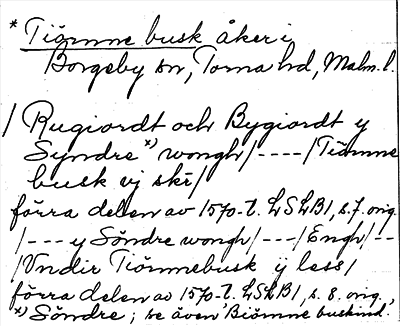 * Tiömne busk åker i
Borgeby sn, Torna hd, Malm. l.
/ Rugiordt och Bygiordt y
Syndre x) wongh/----/Tiömne
busk vj skr/
förra delen av 1570-t. LSLB1, s. 7. orig.
/--- y Söndre wongh/---/Engh/--
/Vndir Tiömnebusk ij less/
förra delen av 1570-t. LSLB1, s. 8. orig.,
x) Söndre; se även Biömne buskind.